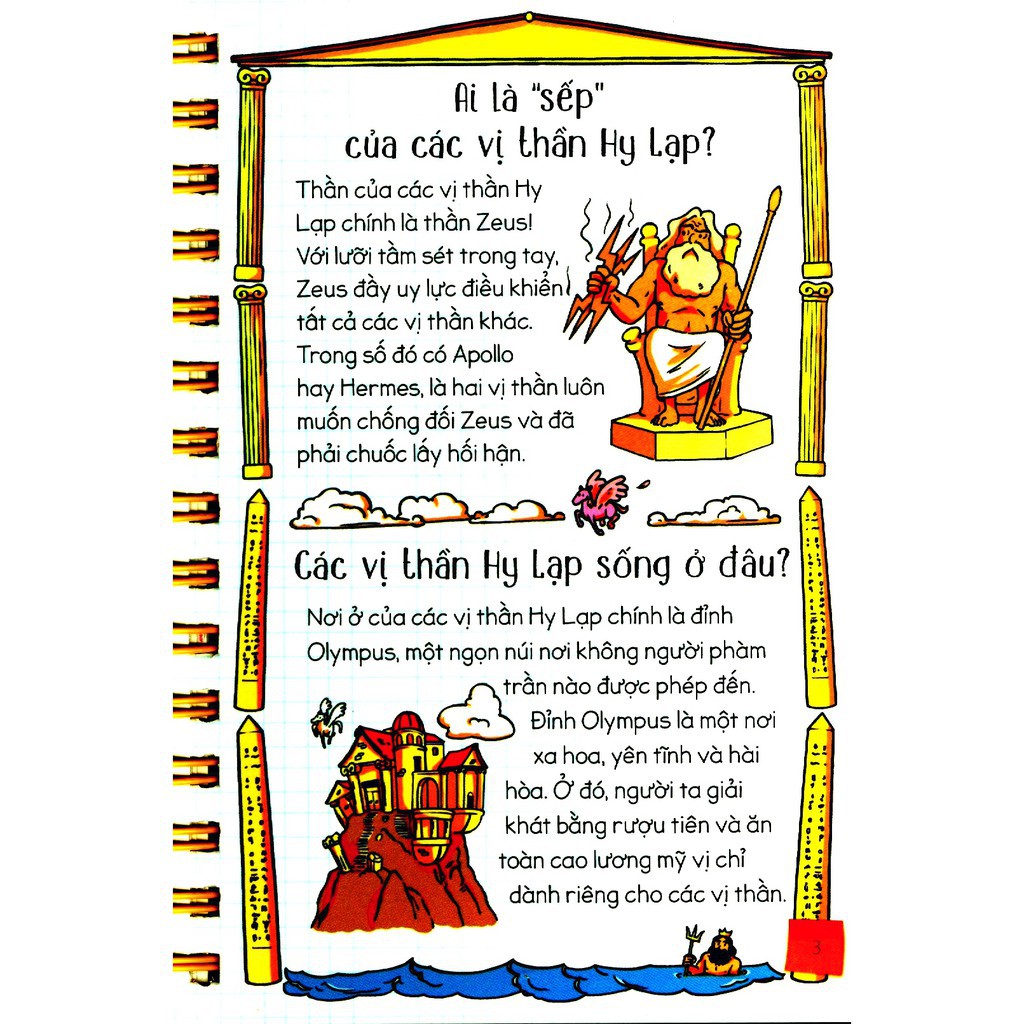 Ai là “sếp”
của các vị thần Hy Lạp?
Thần của các vị thần Hy
Lạp chính là thần Zeus!
Với lưỡi tầm sét trong tay,
Zeus đầy uy lực điều khiển
tất cả các vị thần khác.
Trong số đó có Apollo
hay Hermes, là hai vị thần luôn
muốn chống đối Zeus và đã
phải chuốc lấy hối hận.
Các vị thần Hy Lạp sống ở đâu?
Nơi ở của các vị thần Hy Lạp chính là đỉnh
Olympus, một ngọn núi nơi không người phàm
trần nào được phép đến.
Đỉnh Olympus là một nơi
xa hoa, yên tĩnh và hài
hòa. Ở đó, người ta giải
khát bằng rượu tiên và ăn
toàn cao lương mỹ vị chỉ
dành riêng cho các vị thần.
3